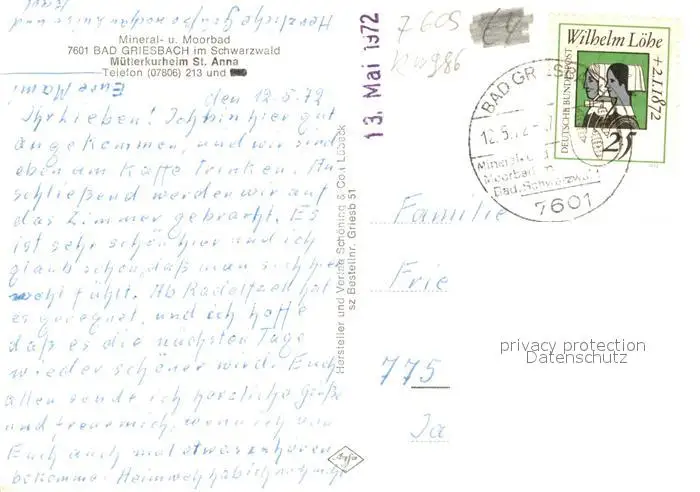 Mineral- u. Moorbad
7601 BAD GRIESBACH im Schwarzwald
Mütterkurheim St. Anna
Telefon (07806) 213 und
den 12.5.72
Ihr lieben! Ich bin hier gut
angekommen, und wir sind
eben am Kaffe trinken. An
schließend werden wir auf
das Zimmer gebracht. Es
ist sehr schön hier und ich
glaub schon, daß man sich hier
wohl fühlt. Ab Radolfzell hat
es geregnet, und ich hoffe
daß es die nächsten Tage
wieder schöner wird. Euch
allen sende ich herzliche Grüße
und freue mich, wenn ich von
Euch auch mal etwas hören
bekomme. Heimweh hab ich noch nicht
Herzliche Grüße
Eure Mami
Hersteller und Verlag Schöning & Co., Lübeck
sz Bestellnr. Griesb 51
Agfa
13. Mai 1972
7605
Wilhelm Löhe
+2.1.1872
DEUTSCHE BUNDESPOST
25
BAD GRIESBACH
12.5.72
Mineral- und
Moorbad
Bad. Schwarzwald
7601
Familie
Frie
privacy protection
Datenschutz
775